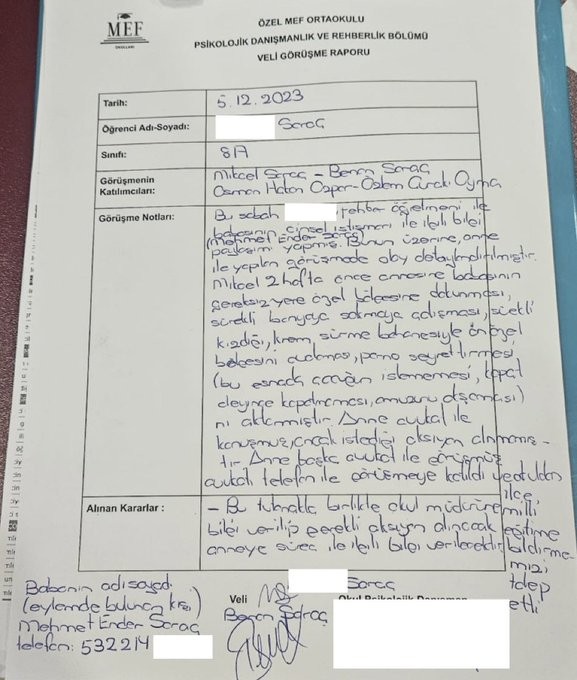 MEF
OKULLARI
ÖZEL MEF ORTAOKULU
PSİKOLOJİK DANIŞMANLIK VE REHBERLİK BÖLÜMÜ
VELİ GÖRÜŞME RAPORU
Tarih: 5.12.2023
Öğrenci Adı-Soyadı: Saraç
Sınıfı: 8/A
Görüşmenin Katılımcıları: Saraç - Benan Saraç
Osman Hakan Özpar - Özlem
Görüşme Notları: Bu sabah , rehber öğretmeni ile
babasının cinsel istismarı ile ilgili bilgi
(Mehmet Ender Saraç)
paylaşımı yapmış. Bunun üzerine, anne
ile yapılan görüşmede olay detaylandırılmıştır.
2 hafta önce annesine babasının
gereksiz yere özel bölgesine dokunması,
sürekli banyoya sokmaya çalışması, sürekli
kızdığı, krem sürme bahanesiyle ön özel
bölgesini, porno seyrettirmesi
(bu esnada çocuğun istememesi, kapat
deyince kapatmaması,)
nı aktarmıştır. Anne avukat ile
konuşmuş, ancak istediği aksiyon alınmamış-
tır. Anne başka avukat ile görüşmüş
avukatı telefon ile görüşmeye katıldı ve
Alınan Kararlar : - Bu tutanakla birlikte okul müdürüne
bilgi verilip gerekli aksiyon alınacak
anneye süreç ile ilgili bilgi verilecektir.
ilçe
milli
eğitime
bildirme-
mizi
talep
etti
Babanın adı soyadı
(eylemde bulunan kişi)
Mehmet Ender Saraç
telefon: 532214
Veli
Saraç
Benan Saraç